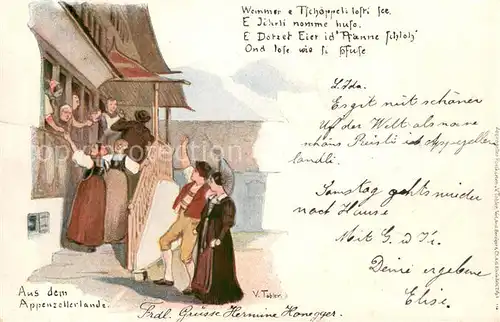 Wemmer e Tschäppeli losti see.
E Jöhrli nomme huso.
E Dotzet Eier id' Pfanne schloh'
Ond lose wie si pfuse
L. Ida.
Es git nüt schöners
Uf der Welt als nune
Reisli is Appezeller
ländli.
Samstag gehts wieder
nach Hause
Mit G. &
Deine ergebene
Elise.
Aus dem
Appenzellerlande.
V. Tobler.
Frdl. Grüsse Hermine Honegger.